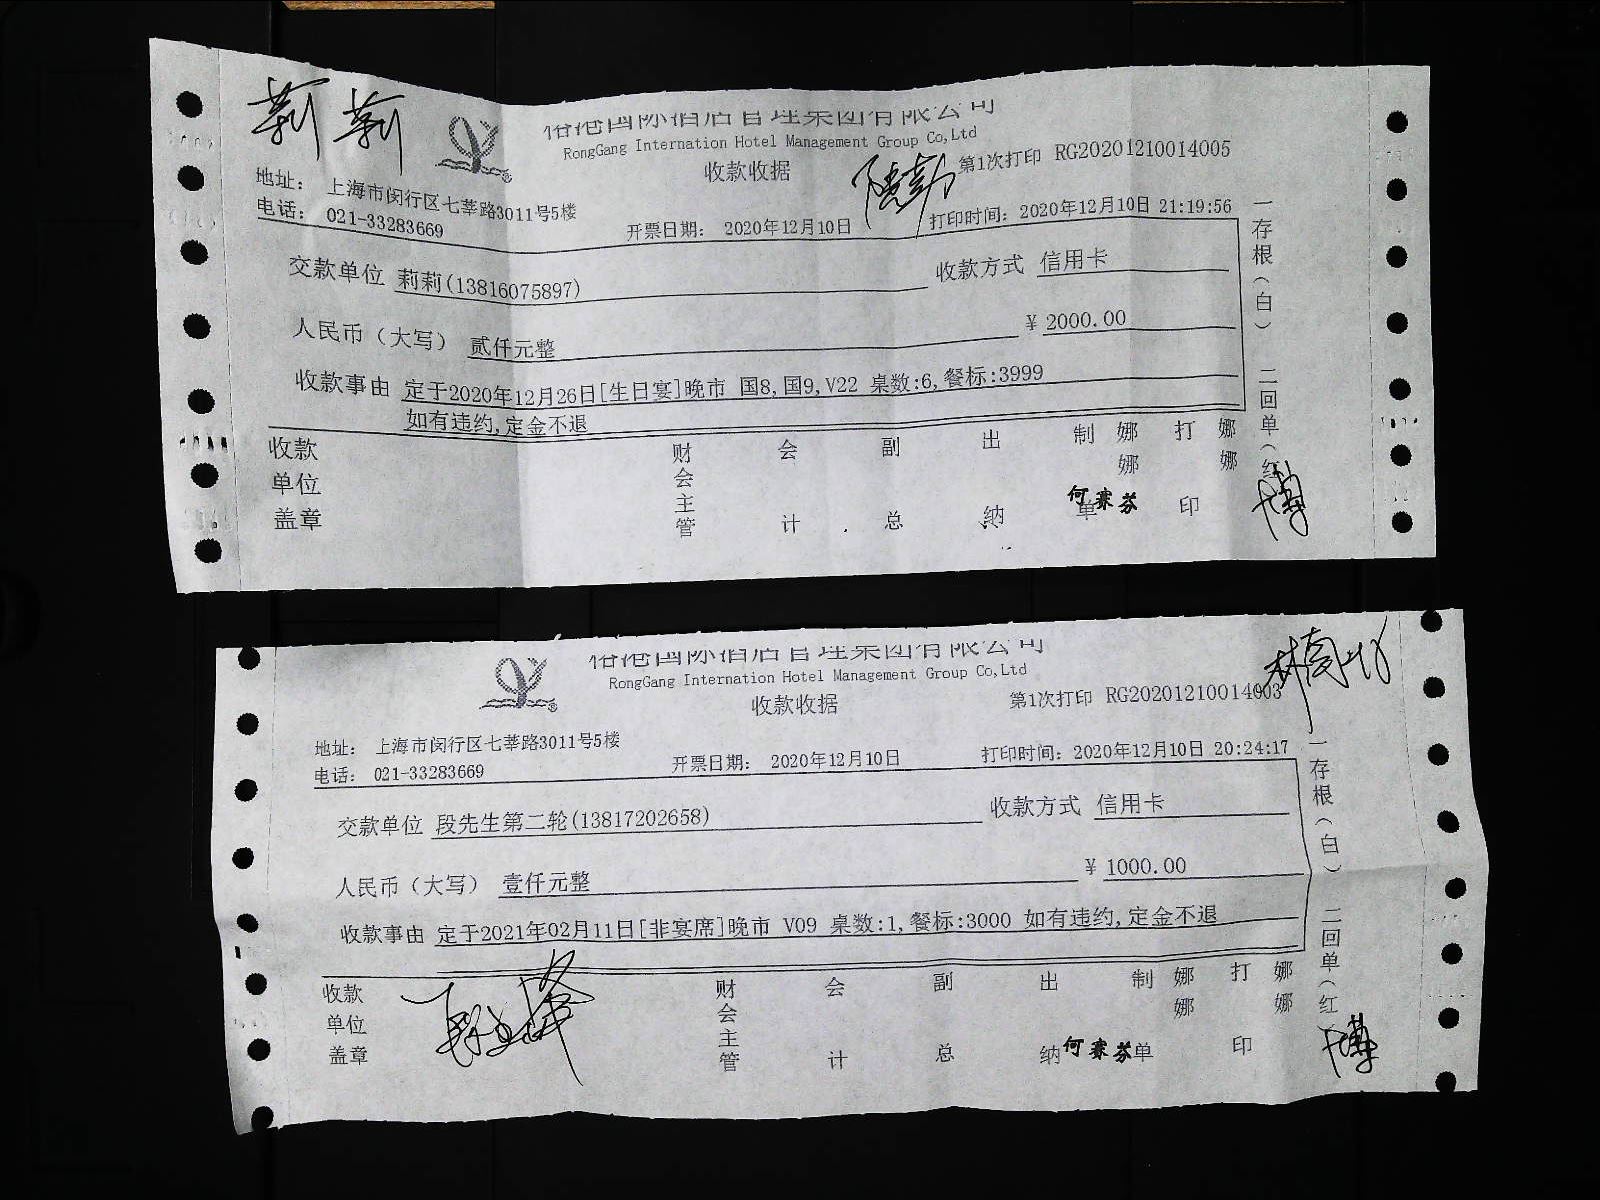 莉莉
俗港国际酒店管理集团有限公司
RongGang Internation Hotel Management Group Co,Ltd
收款收据
第1次打印 RG20201210014005
地址： 上海市闵行区七莘路3011号5楼
电话： 021-33283669
开票日期： 2020年12月10日
打印时间：2020年12月10日 21:19:56
交款单位 莉莉(13816075897)
收款方式 信用卡
人民币（大写） 贰仟元整
¥ 2000.00
收款事由 定于2020年12月26日[生日宴]晚市 国8,国9,V22 桌数:6,餐标:3999
如有违约,定金不退
收款单位盖章
财会主管
会计
副总
出纳
制单
娜娜
打印
娜娜
何赛芬
一存根（白） 二回单（红
俗港国际酒店管理集团有限公司
RongGang Internation Hotel Management Group Co,Ltd
收款收据
第1次打印 RG20201210014003
地址： 上海市闵行区七莘路3011号5楼
电话： 021-33283669
开票日期： 2020年12月10日
打印时间：2020年12月10日 20:24:17
交款单位 段先生第二轮(13817202658)
收款方式 信用卡
人民币（大写） 壹仟元整
¥ 1000.00
收款事由 定于2021年02月11日[非宴席]晚市 V09 桌数:1,餐标:3000 如有违约,定金不退
收款单位盖章
财会主管
会计
副总
出纳
制单
娜娜
打印
娜娜
何赛芬
一存根（白） 二回单（红